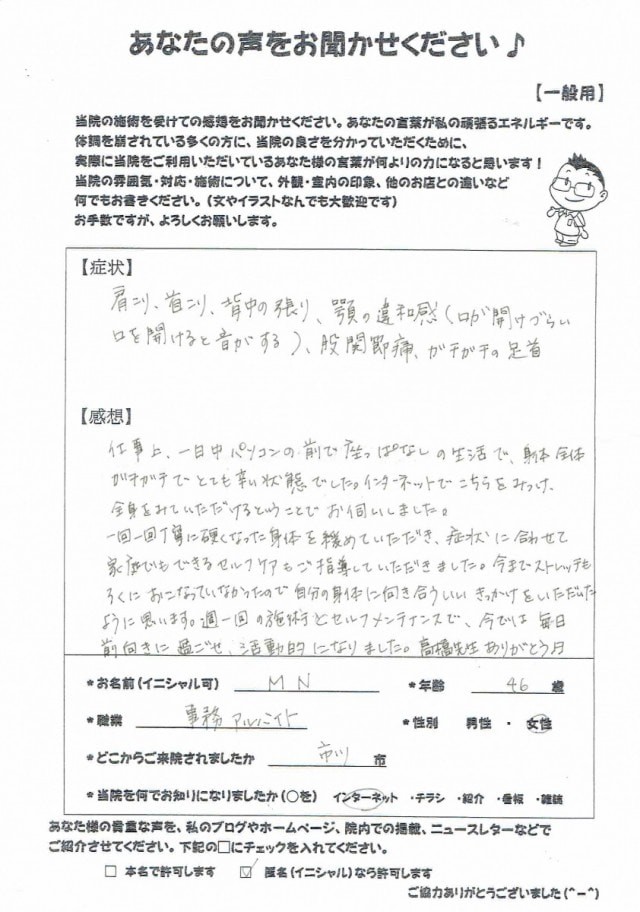 あなたの声をお聞かせください♪
【一般用】
当院の施術を受けての感想をお聞かせください。あなたの言葉が私の頑張るエネルギーです。
体調を崩されている多くの方に、当院の良さを分かっていただくために、
実際に当院をご利用いただいているあなた様の言葉が何よりの力になると思います！
当院の雰囲気・対応・施術について、外観・室内の印象、他のお店との違いなど
何でもお書きください。（文やイラストなんでも大歓迎です）
お手数ですが、よろしくお願いします。
【症状】
肩こり、首こり、背中の張り、顎の違和感（口が開けづらい
口を開けると音がする）、股関節痛、ガチガチの足首
【感想】
仕事上、一日中パソコンの前で座っぱなしの生活で、身体全体
がガチガチでとても辛い状態でした。インターネットでこちらをみつけ、
全身をみていただけるということでお伺いしました。
一回一回丁寧に硬くなった身体を緩めていただき、症状に合わせて
家庭でもできるセルフケアもご指導していただきました。今までストレッチも
ろくにおこなっていなかったので自分の身体に向き合ういいきっかけをいただいた
ように思います。週一回の施術とセルフメンテナンスで、今では毎日
前向きに過ごせ、活動的になりました。高橋先生ありがとう
*お名前（イニシャル可） MN *年齢 46 歳
*職業 事務アルバイト *性別 男性 ・ 女性
*どこからご来院されましたか 市川 市
*当院を何でお知りになりましたか（○を） インターネット ・チラシ ・紹介 ・看板 ・雑誌
あなた様の貴重な声を、私のブログやホームページ、院内での掲載、ニュースレターなどで
ご紹介させてください。下記の□にチェックを入れてください。
□ 本名で許可します ☑ 匿名（イニシャル）なら許可します
ご協力ありがとうございました（^－^）